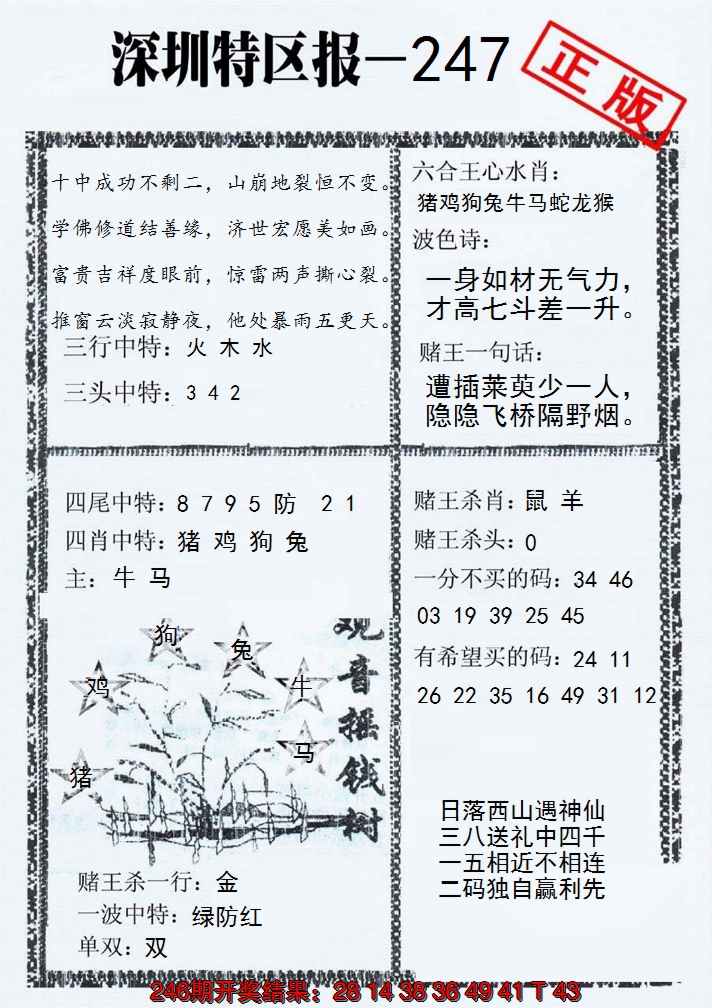 深圳特区报—247
正版
十中成功不剩二，山崩地裂恒不变。
学佛修道结善缘，济世宏愿美如画。
富贵吉祥度眼前，惊雷两声撕心裂。
推窗云淡寂静夜，他处暴雨五更天。
三行中特：火 木 水
三头中特：3 4 2
六合王心水肖：
猪鸡狗兔牛马蛇龙猴
波色诗：
一身如材无气力，
才高七斗差一升。
赌王一句话：
遭插莱萸少一人，
隐隐飞桥隔野烟。
四尾中特：8 7 9 5 防 2 1
四肖中特：猪 鸡 狗 兔
主：牛 马
狗
兔
鸡
牛
马
猪
观音摇钱树
赌王杀一行：金
一波中特：绿防红
单双：双
赌王杀肖：鼠 羊
赌王杀头：0
一分不买的码：34 46
03 19 39 25 45
有希望买的码：24 11
26 22 35 16 49 31 12
日落西山遇神仙
三八送礼中四千
一五相近不相连
二码独自赢利先
246期开奖结果：28 14 38 36 49 41 T 43